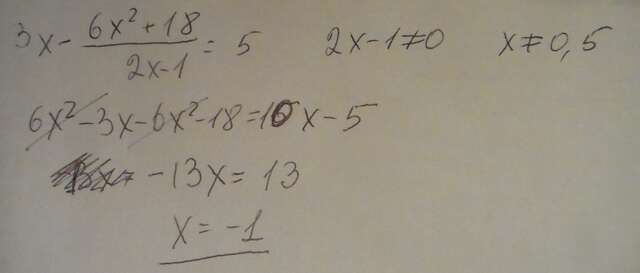 3x - (6x² + 18)/(2x - 1) = 5    2x - 1 ≠ 0    x ≠ 0,5
6x² - 3x - 6x² - 18 = 10x - 5
-13x = 13
x = -1